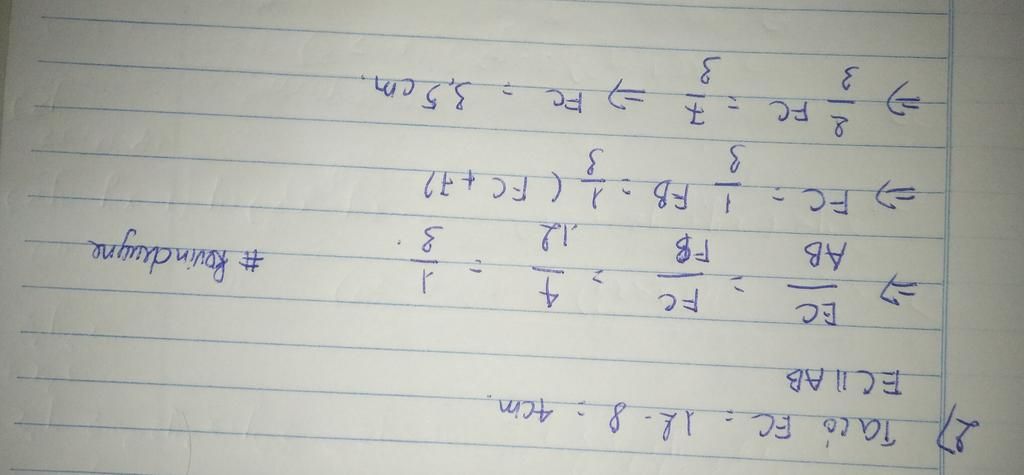 2) Ta có EC = 12 - 8 = 4cm.
EC // AB
=> EC/AB = FC/FB = 4/12 = 1/3.
=> FC = 1/3 FB = 1/3 (FC + 7)
=> 2/3 FC = 7/3 => FC = 3,5 cm.